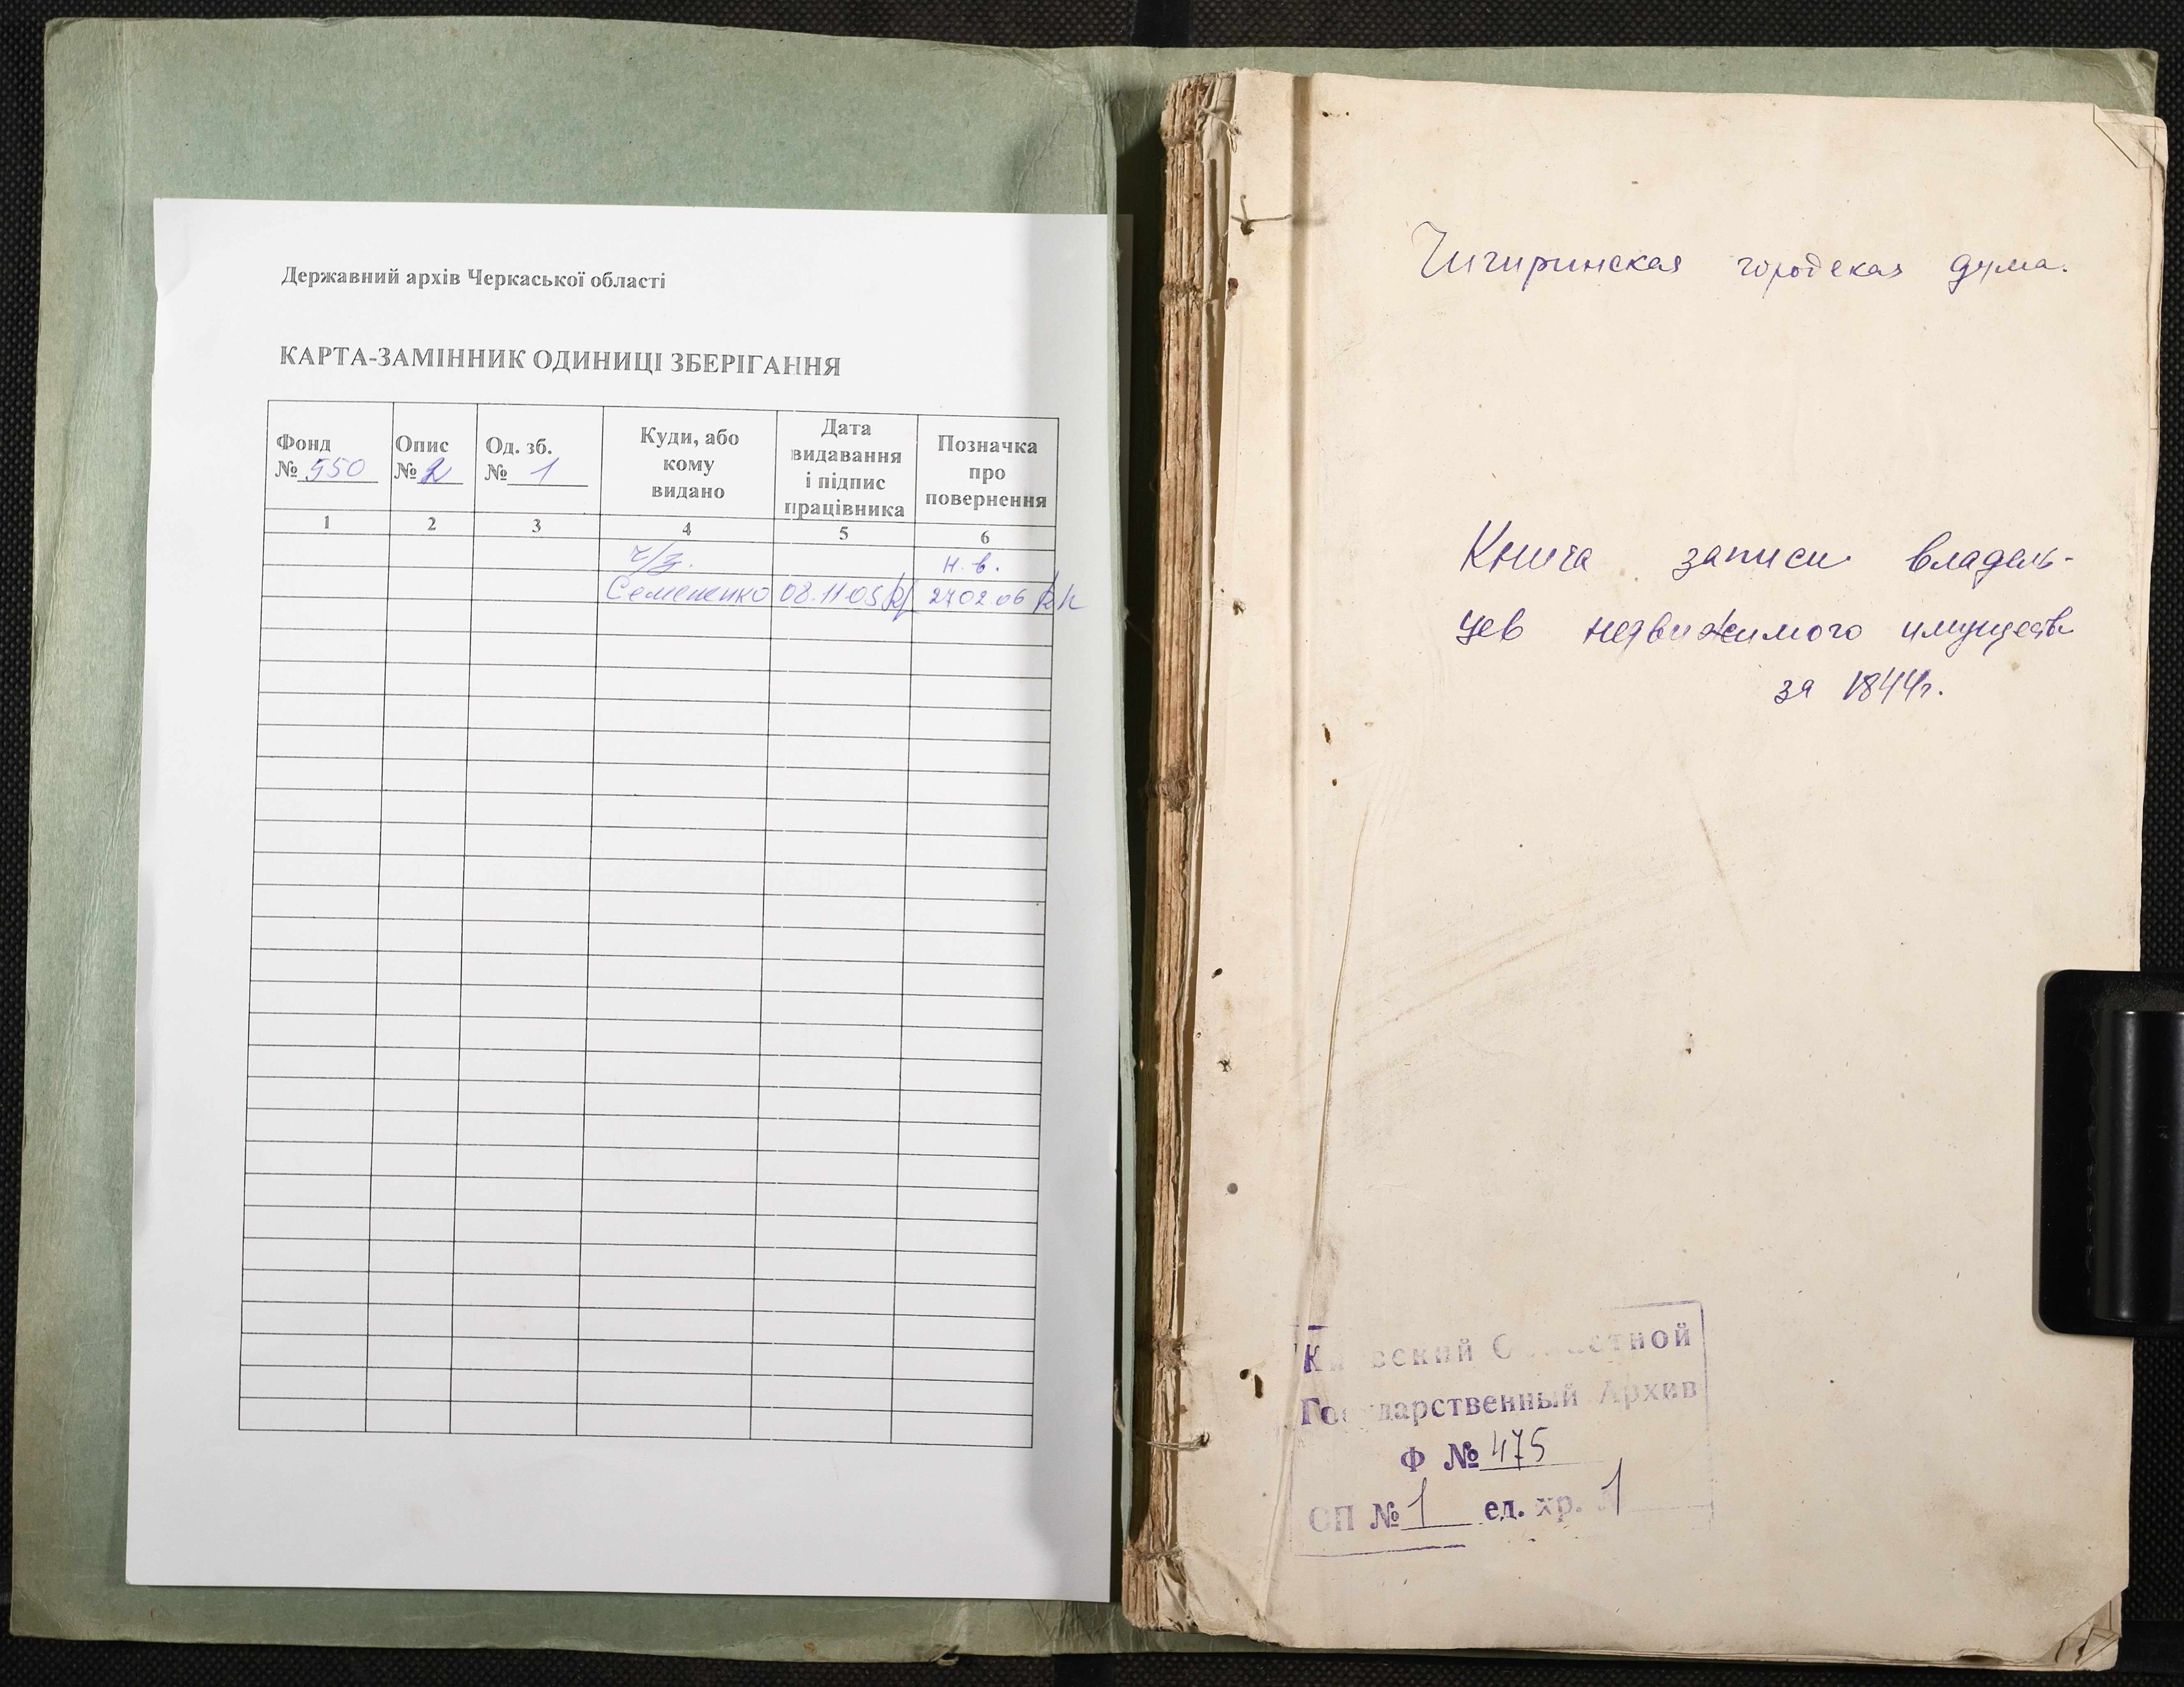 Державний архів Черкаської області
КАРТА-ЗАМІННИК ОДИНИЦІ ЗБЕРІГАННЯ
Фонд
№ 550
Опис
№ 2
Од. зб.
№ 1
Куди, або
кому
видано
Дата
видавання
і підпис
працівника
Позначка
про
повернення
1 2 3 4 5 6
ч/з. н. в.
Семененко 08.11.05 27.02.06
Чигиринская городская дума.
Книга записи владель-
цев недвижимого имуществ
за 1844г.
Киевский Областной
Государственный Архив
Ф № 475
ОП № 1 ед. хр. 1